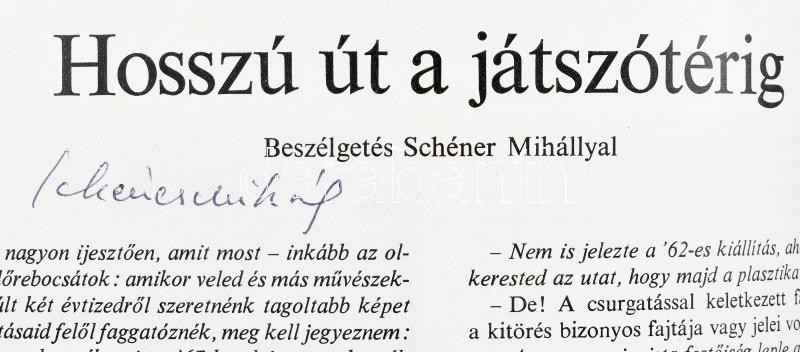 Hosszú út a játszótérig
Beszélgetés Schéner Mihállyal
Schéner Mihály
nagyon ijesztően, amit most – inkább az ol-
lőrebocsátok: amikor veled és más művészek-
últ két évtizedről szeretnénk tagoltabb képet
tásaid felől faggatóznék, meg kell jegyeznem:
– Nem is jelezte a '62-es kiállítás, aho
kerested az utat, hogy majd a plasztika
– De! A csurgatással keletkezett fa
a kitörés bizonyos fajtája vagy jelei vo